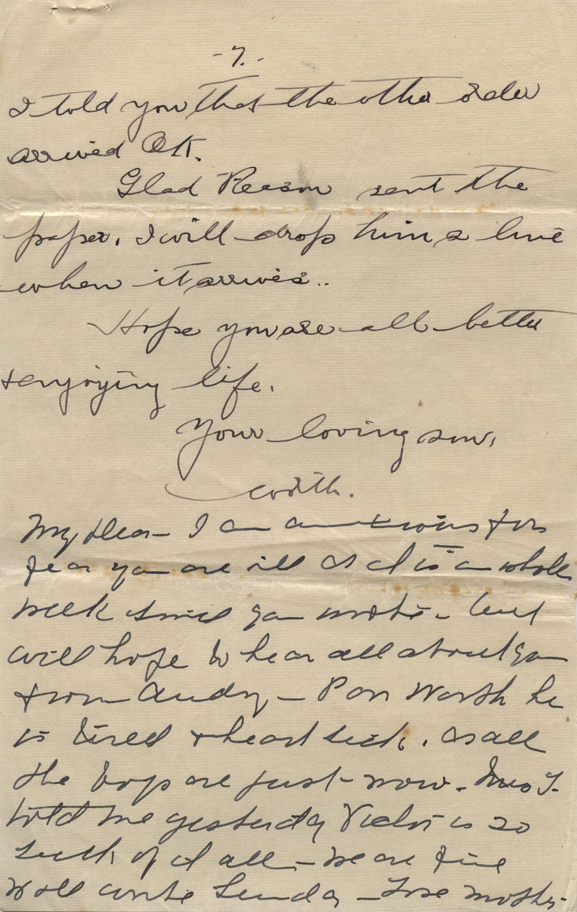 -7.-
I told you that the other order
arrived OK.
Glad Reason sent the
paper. I will drop him a line
when it arrives..
Hope you are all better
& enjoying life.
Your loving son,
Worth.
My Dear - I am anxious for
fear you are ill as it is a whole
week since you wrote - but
will hope to hear all about you
from Andy - Poor Worth he
is tired & heart sick. as all
the boys are just now - Mrs T-
told me yesterday Victor is so
sick of it all - we are fine
Will write Sunday - Love mother-